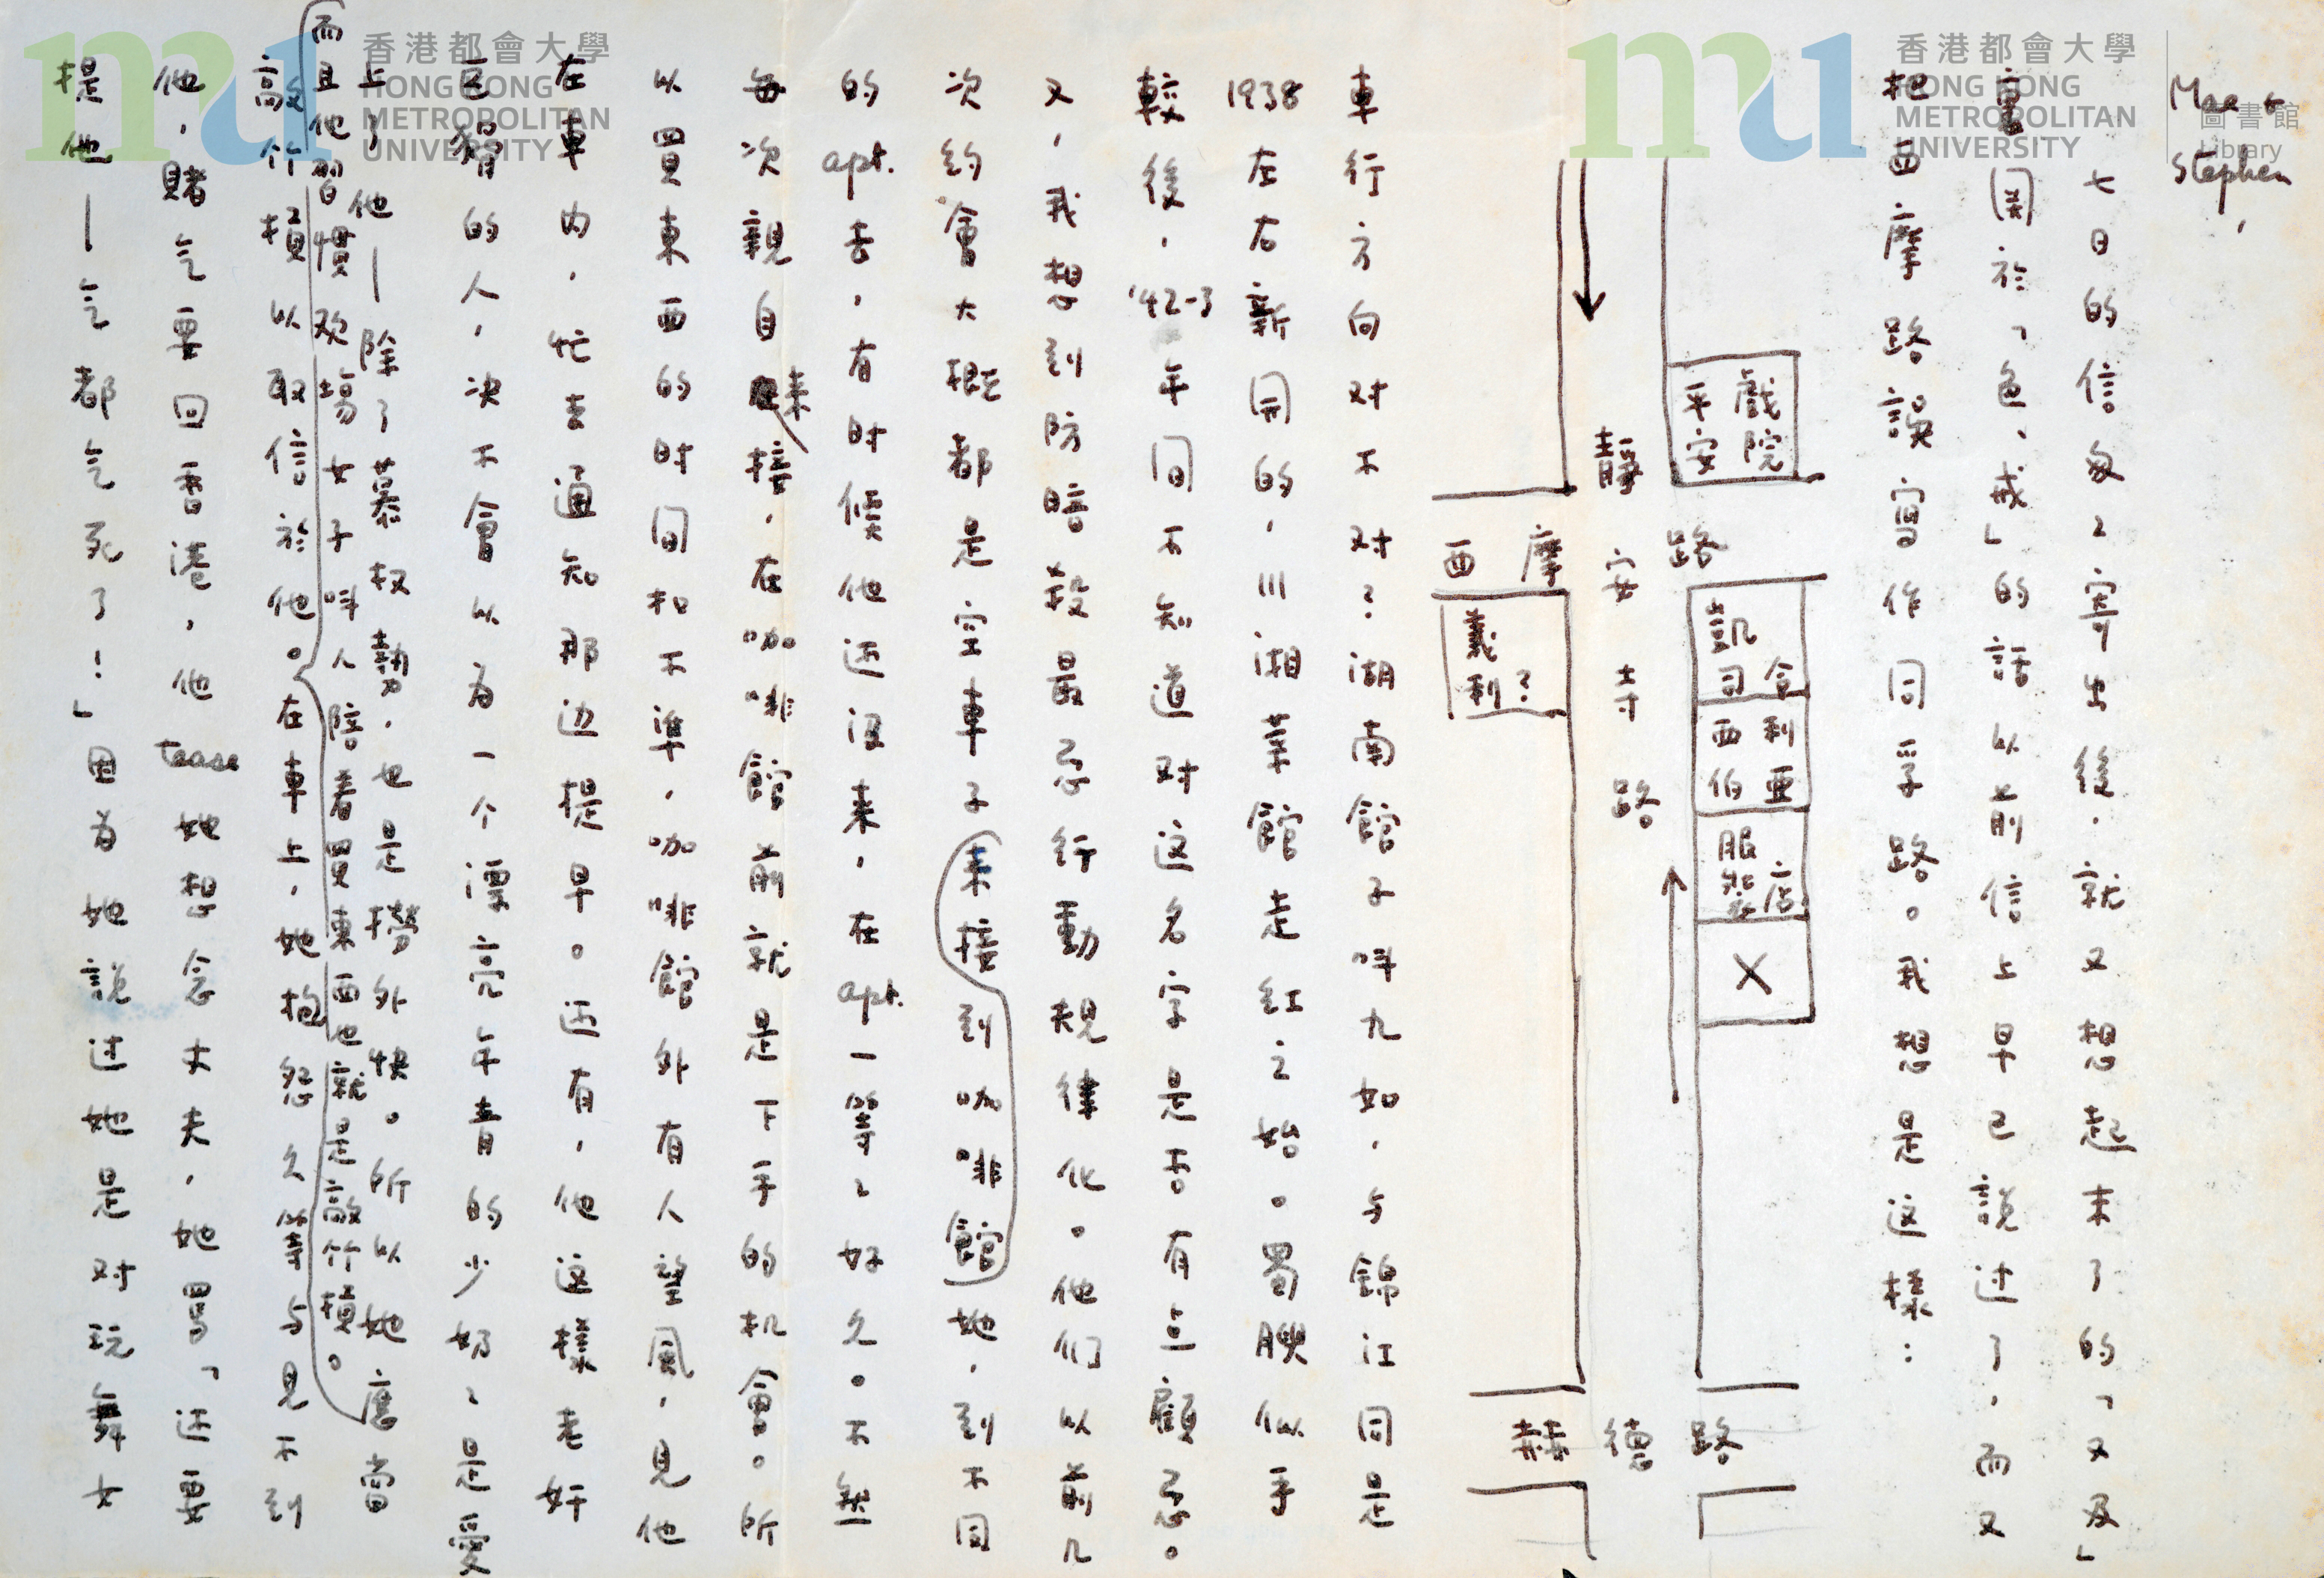 Mae & Stephen,
七日的信匆匆寄出後,就又想起末了的「又及」
重, 関於「色,戒」的話以前信上早已説过了,而又
把西摩路誤寫作同孚路。我想是这樣:
平安戲院
凱司令
西伯利亚
服裝店
X
靜安寺路
西摩路
義利?
赫德路
車行方向对不对?湖南館子叫九如,与錦江同是
1938左右新開的,川湘菜館走紅之始。蜀腴似乎
較後,'42-3年间不知道对这名字是否有点顧忌。
又,我想到防暗殺最忌行動規律化。他们以前几
次約會大概都是空車子来接到咖啡館她,到不同
的apt.去,有时候他还没来,在apt.一等ㄑ好久。不然
每次親自来接,在咖啡館前就是下手的机會。所
以買東西的时间扣不準,咖啡館外有人望風,見他
在車内,忙去通知那边提早。还有,他这樣老奸
巨猾的人,决不會以为一个漂亮年青的少奶ㄑ是愛
上了他—除了慕权勢,也是撈外快。所以她應當
而且他習慣欢場女子叫人陪着買東西也就是敲竹槓。
敲竹槓以取信於他。在車上,她抱怨久等与見不到
他,賭气要回香港,他tease她想念丈夫,她罵「还要
提他—气都气死了!」因为她説过她是对玩舞女
香港都會大學
HONG KONG
METROPOLITAN
UNIVERSITY
香港都會大學
HONG KONG
METROPOLITAN
UNIVERSITY
圖書館
Library